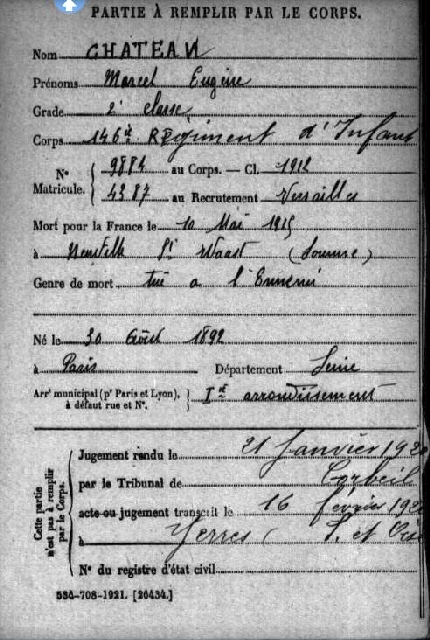 PARTIE À REMPLIR PAR LE CORPS.
Nom CHATEAU
Prénoms Marcel Eugène
Grade 2e classe
Corps 146e Régiment d'Infant
N° Matricule. { 9884 au Corps. — Cl. 1912
4387 au Recrutement Versailles
Mort pour la France le 10 Mai 1915
à Neuville St Waast (Somme)
Genre de mort tué a l'Ennemi
Né le 30 Août 1892
à Paris Département Seine
Arrt municipal (pr Paris et Lyon), à défaut rue et N°. { Ier arrondissement
Cette partie n'est pas à remplir par le Corps.
Jugement rendu le 21 Janvier 192
par le Tribunal de Corbeil
acte ou jugement transcrit le 16 février 192
à Yerres (S. et Oise
N° du registre d'état civil
534-708-1921. [26434.]